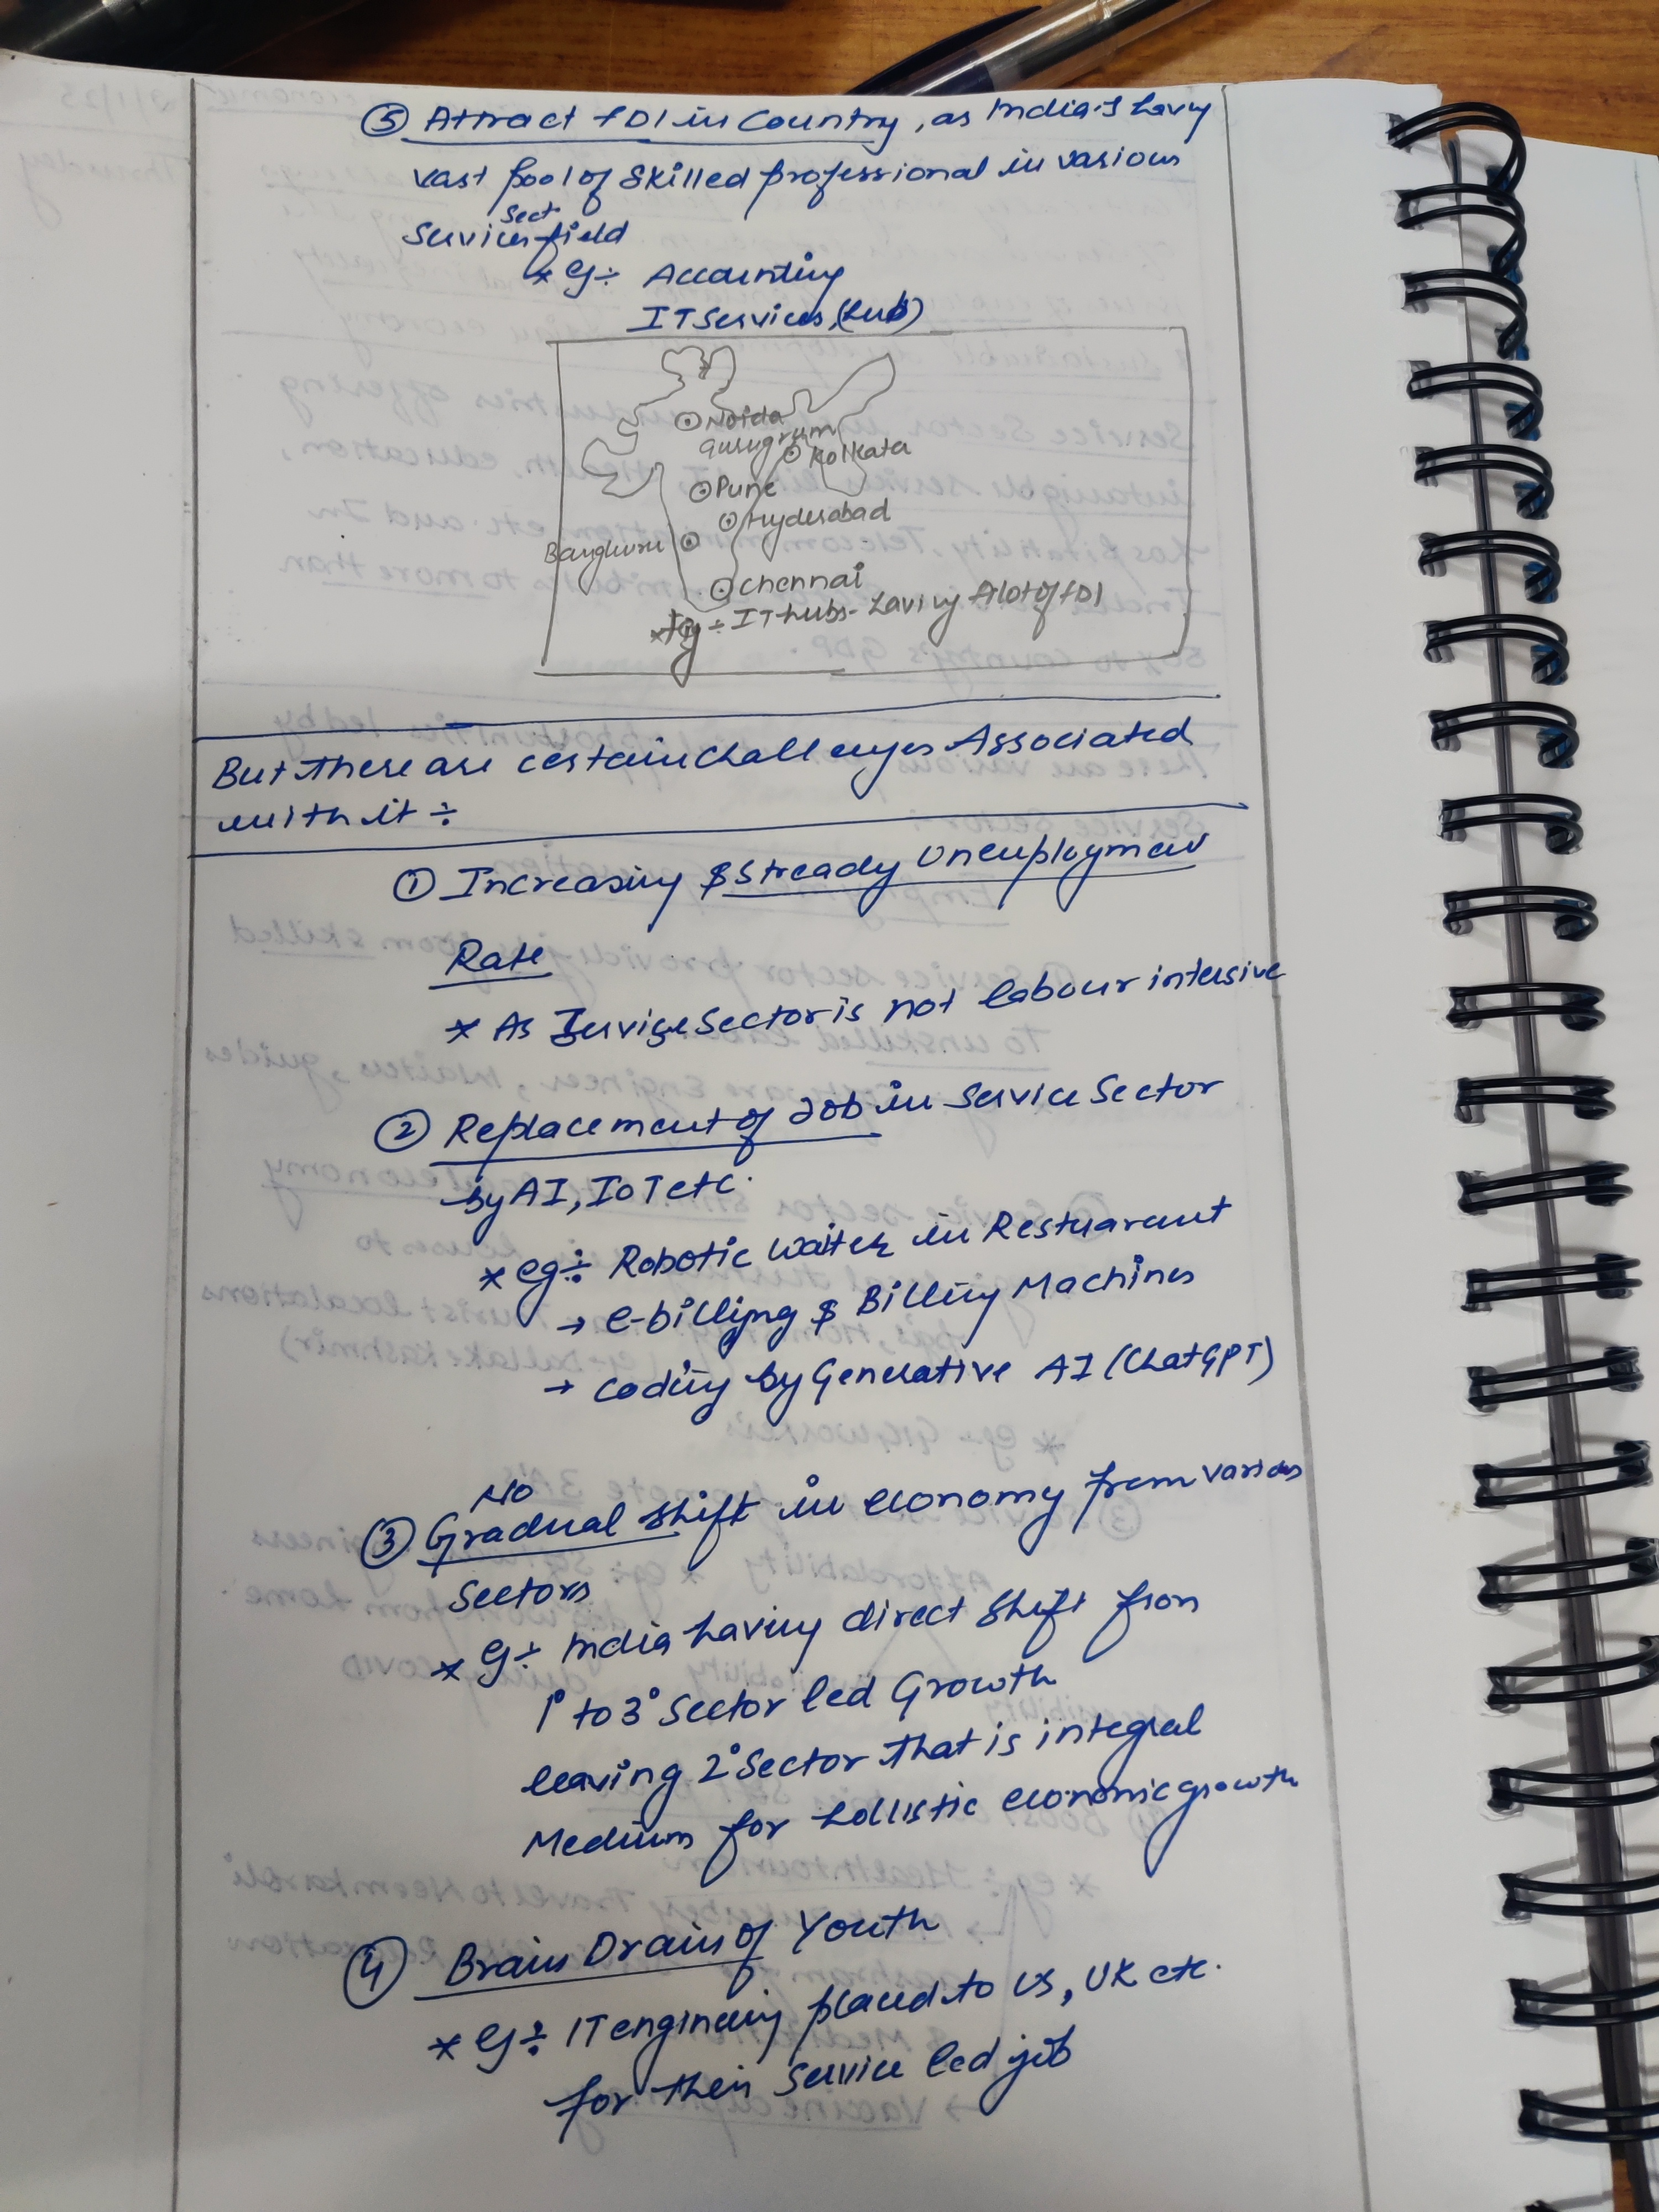 ⑤ Attract FDI in Country, as India is having
vast pool of skilled professional in various
Sect
Services field
* eg ÷ Accounting
IT Services, (hub)
Noida
Gurugram
Kolkata
Pune
Hyderabad
Bangluru
Chennai
* Fig ÷ IT hubs - having A lot of FDI
But there are certain challenges Associated
with it ÷
① Increasing & Stready Unemployment
Rate
* As Service Sector is not labour intensive
② Replacement of Job in Service Sector
by AI, IoT etc.
* eg ÷ Robotic waiter in Restuarant
→ e-billing & Billing Machines
→ coding by Generative AI (ChatGPT)
No
③ Gradual shift in economy from various
Sectors
* eg ÷ India having direct shift from
1° to 3° Sector led Growth
leaving 2° Sector that is integral
Medium for hollistic economic growth
④ Brain Drain of Youth
* eg ÷ IT enginering placed to US, UK etc.
for their service led job